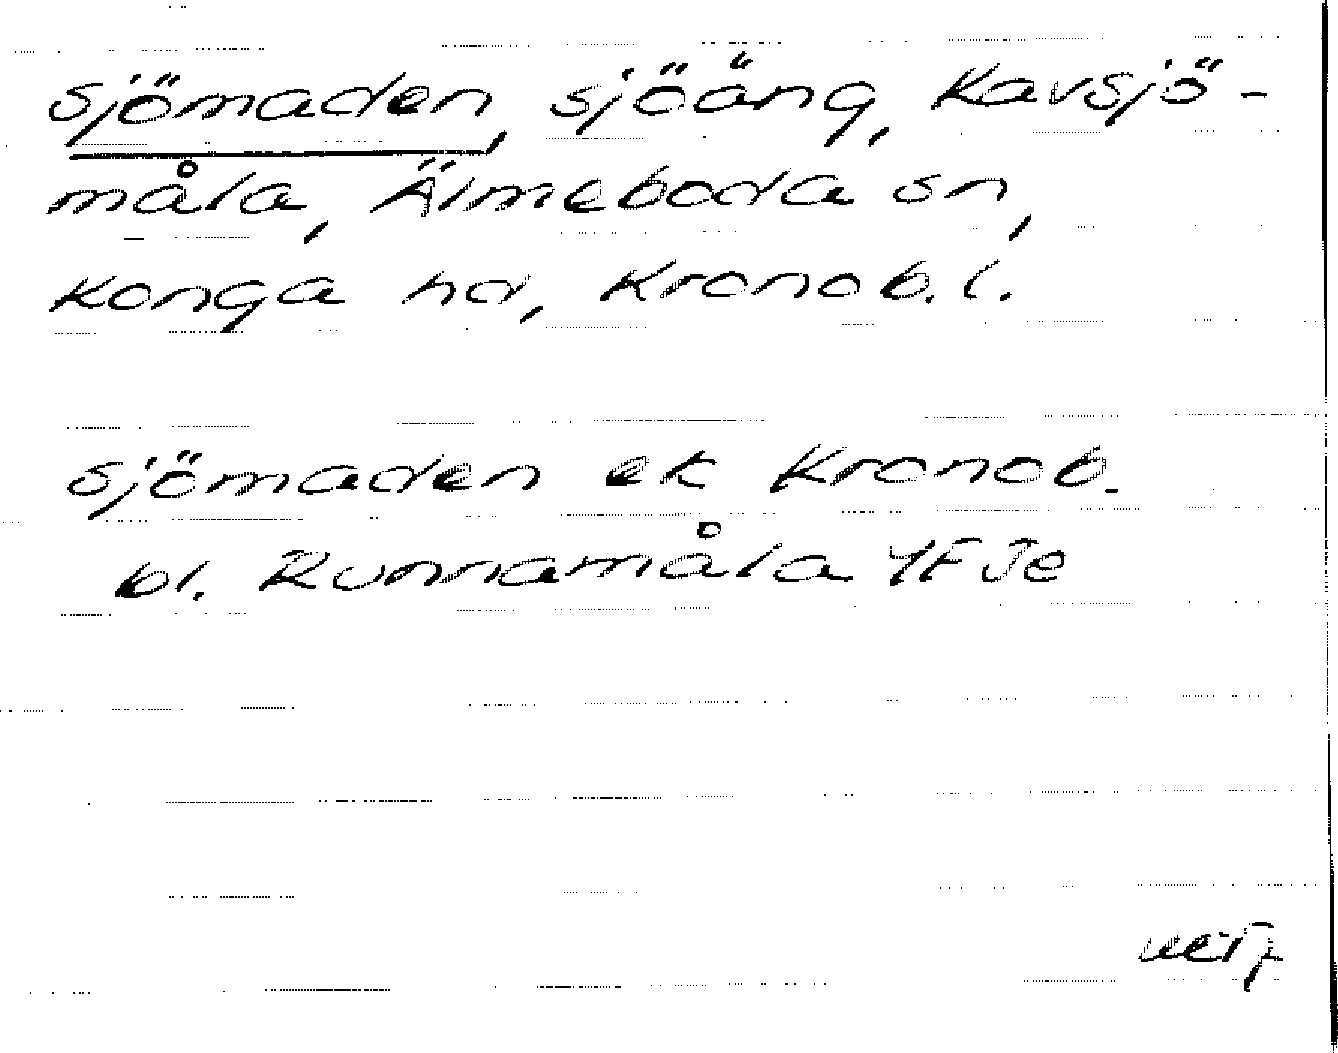 sjömaden, sjöäng, Kavsjö-
måla, Älmeboda sn,
Konga hd, Kronob. l.
sjömaden ek Kronob.
bl. Runnamåla 1F Je